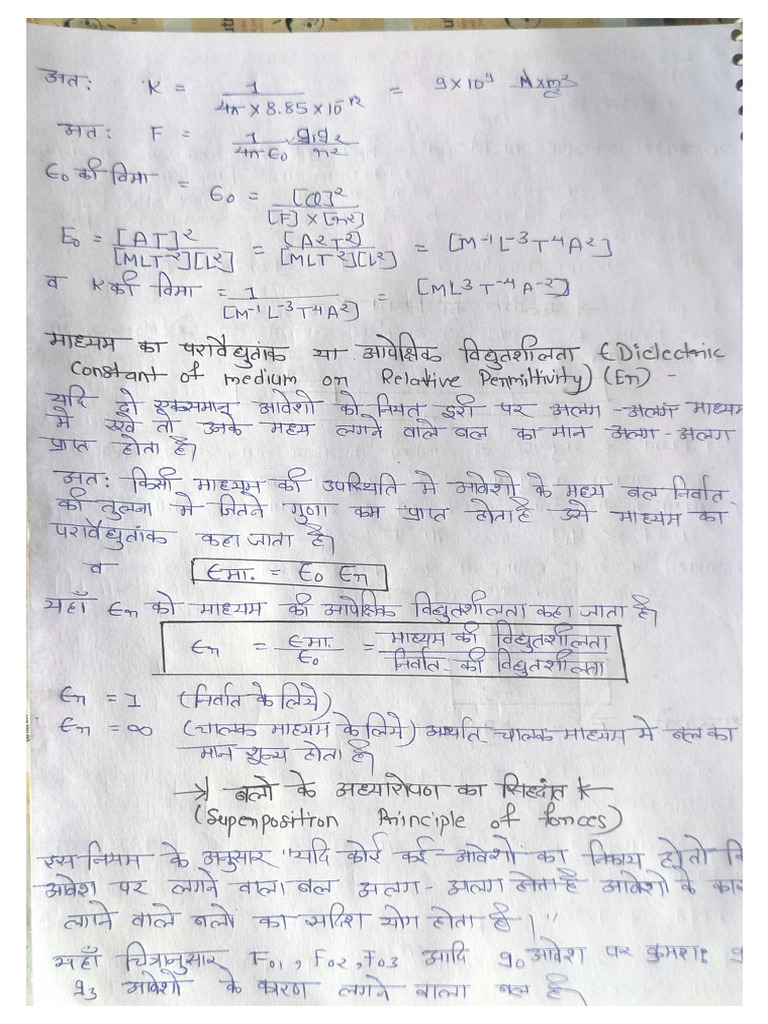 अतः K = 1 / 4π × 8.85 × 10⁻¹² = 9 × 10⁹ N×m² / c²
अतः F = 1 / 4π ε₀ q₁q₂ / r²
ε₀ की विमा = ε₀ = [Q]² / [F] × [r²]
ε₀ = [AT]² / [MLT⁻²][L²] = [A²T²] / [MLT⁻²][L²] = [M⁻¹L⁻³T⁴A²]
व K की विमा = 1 / [M⁻¹L⁻³T⁴A²] = [ML³T⁻⁴A⁻²]
माध्यम का परावैद्युतांक या आपेक्षिक विद्युतशीलता (Dielectric
Constant of medium or Relative Permittivity) (Er) -
यदि दो एकसमान आवेशो को नियत दूरी पर अलग - अलग माध्यम
मे रखे तो उनके मध्य लगने वाले बल का मान अलग - अलग
प्राप्त होता है।
अतः किसी माध्यम की उपस्थिति मे आवेशो के मध्य बल निर्वात
की तुलना मे जितने गुणा कम प्राप्त होता है उसे माध्यम का
परावैद्युतांक कहा जाता है।
व εमा. = ε₀ εr
यहाँ εr को माध्यम की आपेक्षिक विद्युतशीलता कहा जाता है।
εr = εमा. / ε₀ = माध्यम की विद्युतशीलता / निर्वात की विद्युतशीलता
εr = 1 (निर्वात के लिये)
εr = ∞ (चालक माध्यम के लिये) अर्थात् चालक माध्यम मे बल का
मान शून्य होता है।
→ बलो के अध्यारोपण का सिद्धांत ←
(Superposition Principle of forces)
इस नियम के अनुसार "यदि कोई कई आवेशो का निकाय हो तो
आवेश पर लगने वाला बल अलग - अलग होता है आवेशो के
लगने वाले बलों का सदिश योग होता है।"
यहाँ चित्रानुसार F₀₁, F₀₂, F₀₃ आदि q₀ आवेश पर क्रमशः
q₃ आवेशो के कारण लगने वाला बल है।